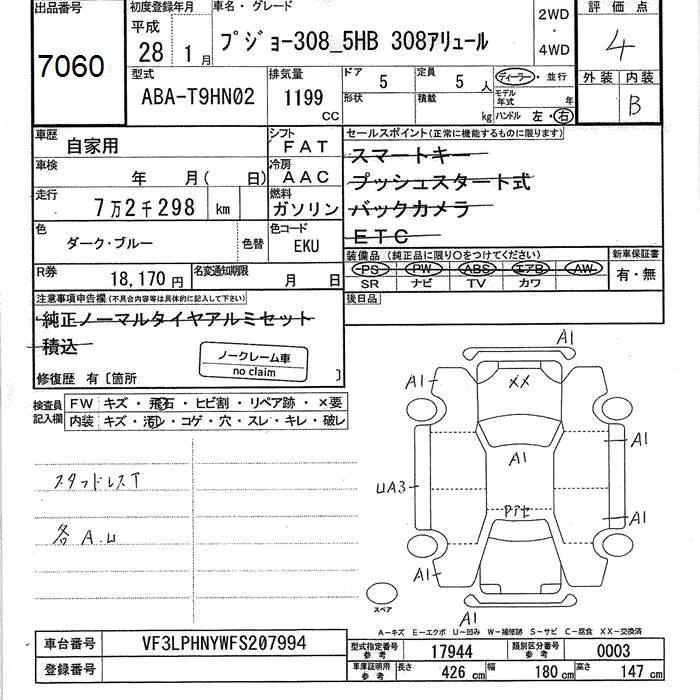 出品番号
7060
初度登録年月
平成
28 1月
車名・グレード
プジョー308_5HB 308アリュール
2WD
・
4WD
評価点
4
外装 内装
B
型式
ABA-T9HN02
排気量
1199
CC
ドア 5
定員 5人
形状
積載 kg
ディーラー・並行
モデル年式 年
ハンドル 左・右
車歴 自家用
シフト FAT
車検 年 月( 日)
冷房 AAC
走行 7万2千298 km
燃料 ガソリン
色 ダーク・ブルー 色替
色コード EKU
R券 18,170円
名変通知期限 月 日
セールスポイント(正常に機能するものに限ります)
スマートキー
プッシュスタート式
バックカメラ
ETC
装備品(純正品に限り○をつけてください)
PS PW ABS エアB AW
SR ナビ TV カワ
新車保証書
有・無
後日品
注意事項申告欄(不具合内容等は具体的に記入して下さい)
純正ノーマルタイヤアルミセット
積込
ノークレーム車
no claim
修復歴 有〔箇所 〕
検査員記入欄
FW キズ・飛石・ヒビ割・リペア跡・×要
内装 キズ・汚レ・コゲ・穴・スレ・キレ・破レ
スタッドレスT
各A.U
A1
A1
XX
A1
A1
A1
UA3
Pアセ
A1
A1
A1
スペア
A-キズ E-エクボ U-凹み W-補修跡 S-サビ C-腐食 XX-交換済
車台番号 VF3LPHNYWFS207994
登録番号
型式指定番号 参考 17944
類別区分番号 参考 0003
車庫証明用 参考 長さ 426cm 幅 180cm 高さ 147cm